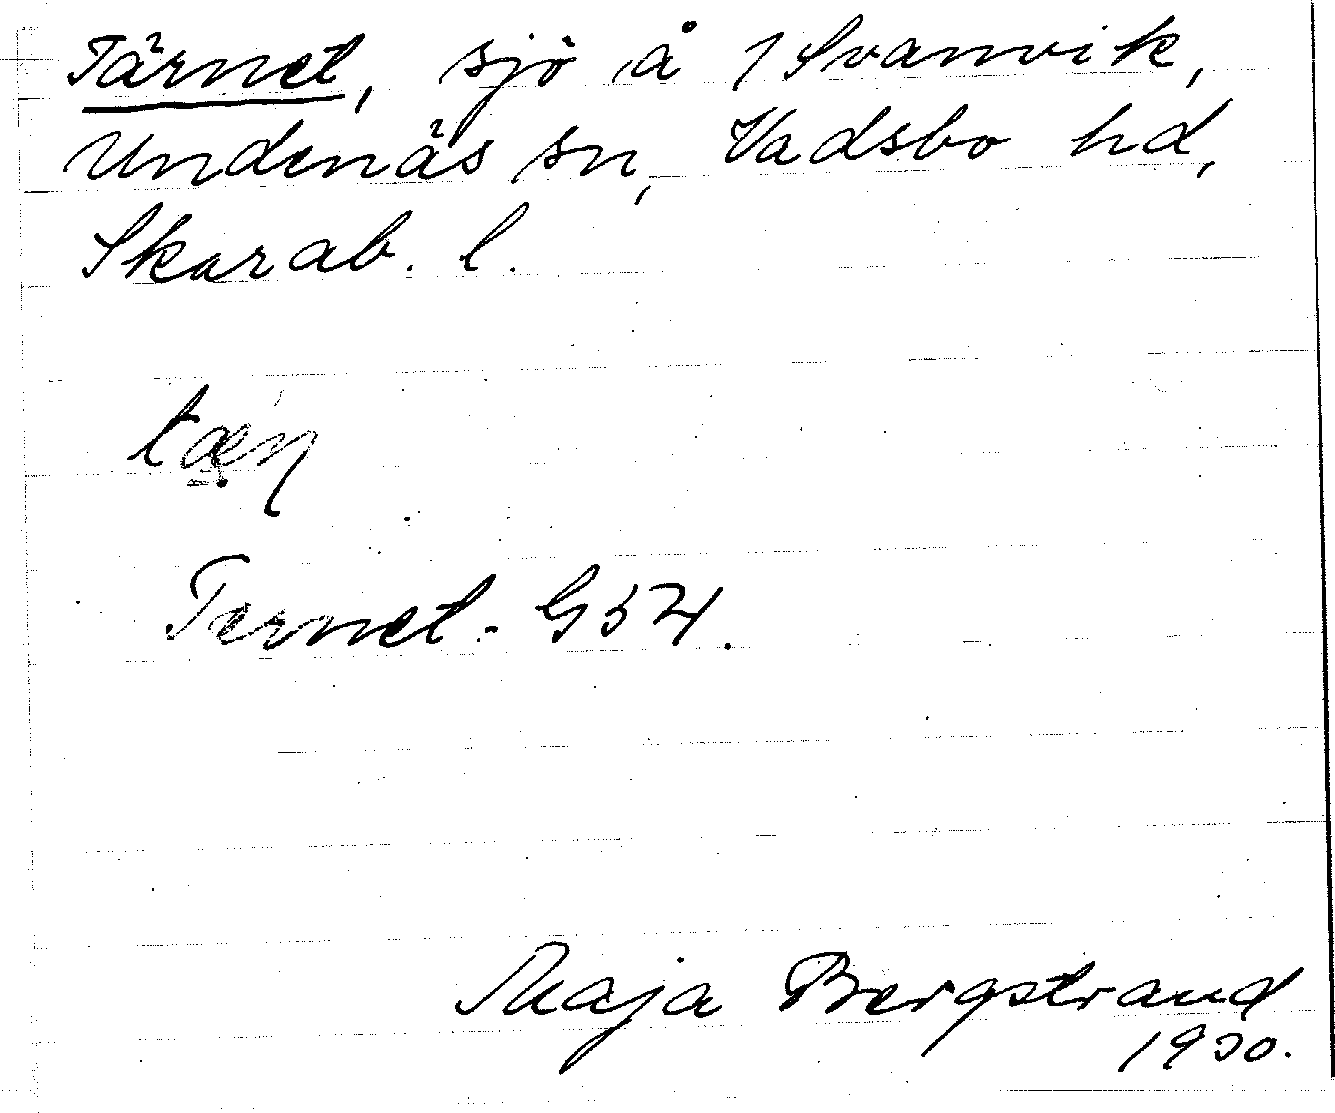 Tärnet, sjö å 1 Svanvik,
Undenäs sn, Vadsbo hd,
Skarab. l.
Ternet. G 54.
Maja Bergstrand
1930.